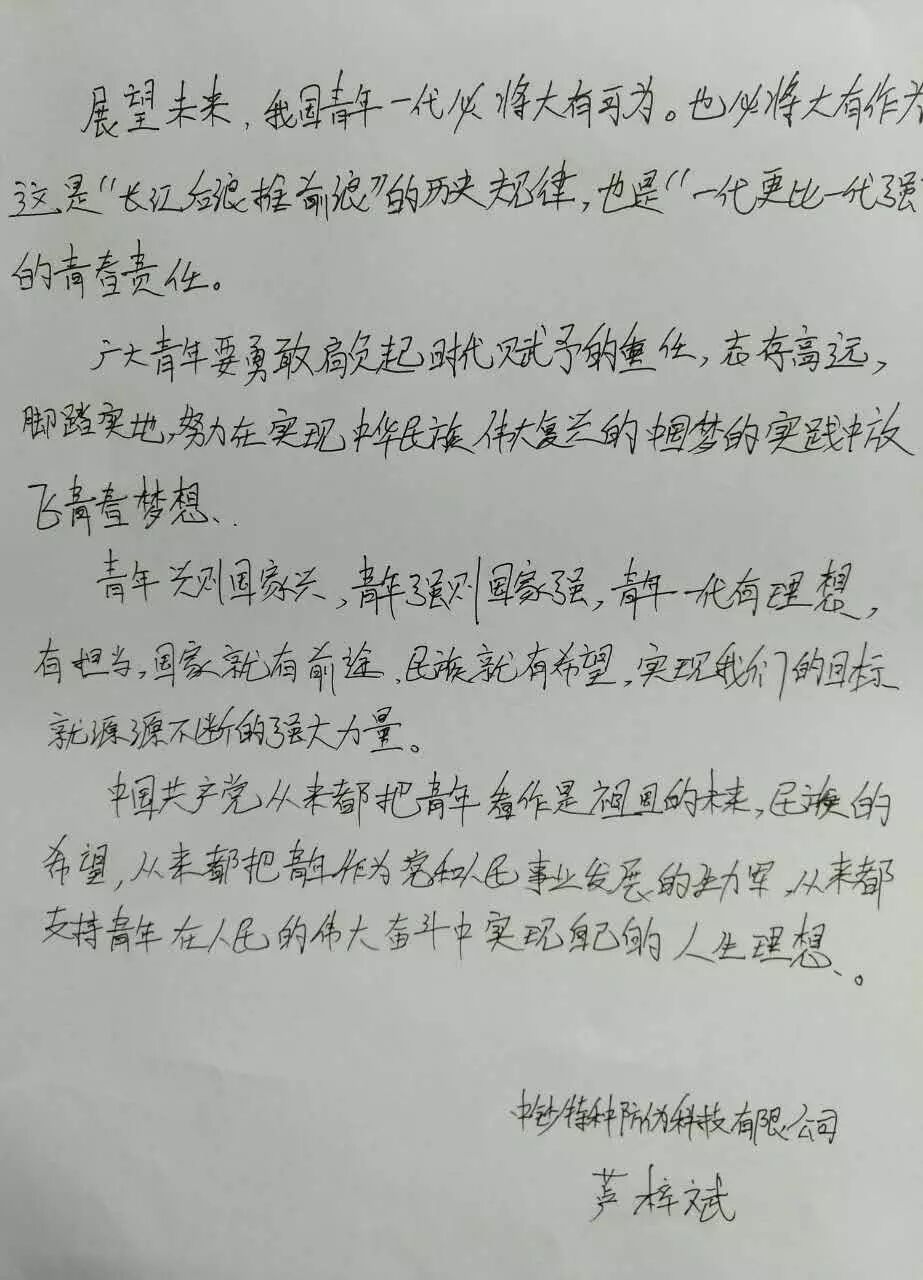 展望未来，我国青年一代必将大有可为。也必将大有作为
这是“长江后浪推前浪”的历史规律，也是“一代更比一代强”
的青春责任。
广大青年要勇敢肩负起时代赋予的重任，志存高远，
脚踏实地，努力在实现中华民族伟大复兴的中国梦的实践中放
飞青春梦想、.
青年兴则国家兴，青年强则国家强，青年一代有理想，
有担当，国家就有前途，民族就有希望，实现我们的目标
就源源不断的强大力量。
中国共产党从来都把青年看作是祖国的未来，民族的
希望，从来都把青年作为党和人民事业发展的主力军，从来都
支持青年在人民的伟大奋斗中实现自己的人生理想、。
中钞特种防伪科技有限公司
芦梓斌